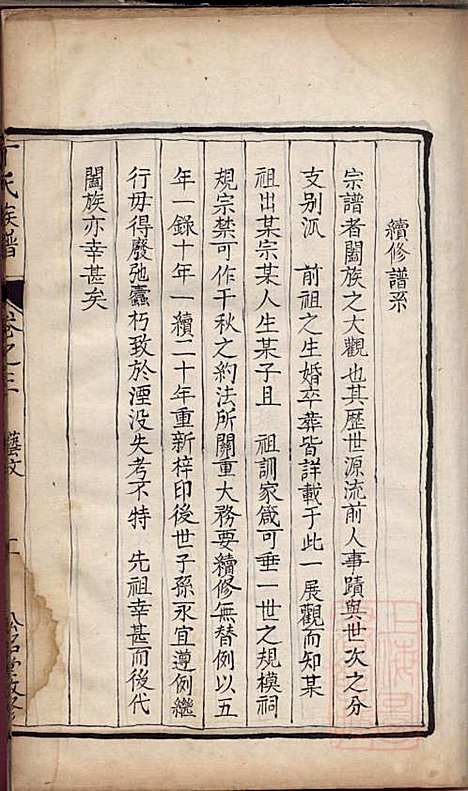 續修譜系
宗譜者闔族之大觀也其歷世源流前人事蹟與世次之分
支别派 前祖之生婚卒葬皆詳載于此一展觀而知某
祖出某宗某人生某子且 祖訓家箴可垂一世之規模祠
規宗禁可作千秋之約法所關重大務要續修無替例以五
年一錄十年一續二十年重新梓印後世子孫永宜遵例繼
行毋得廢弛蠹朽致於湮没失考不特 先祖幸甚而後代
闔族亦幸甚矣
氏族譜
卷之三
藝文